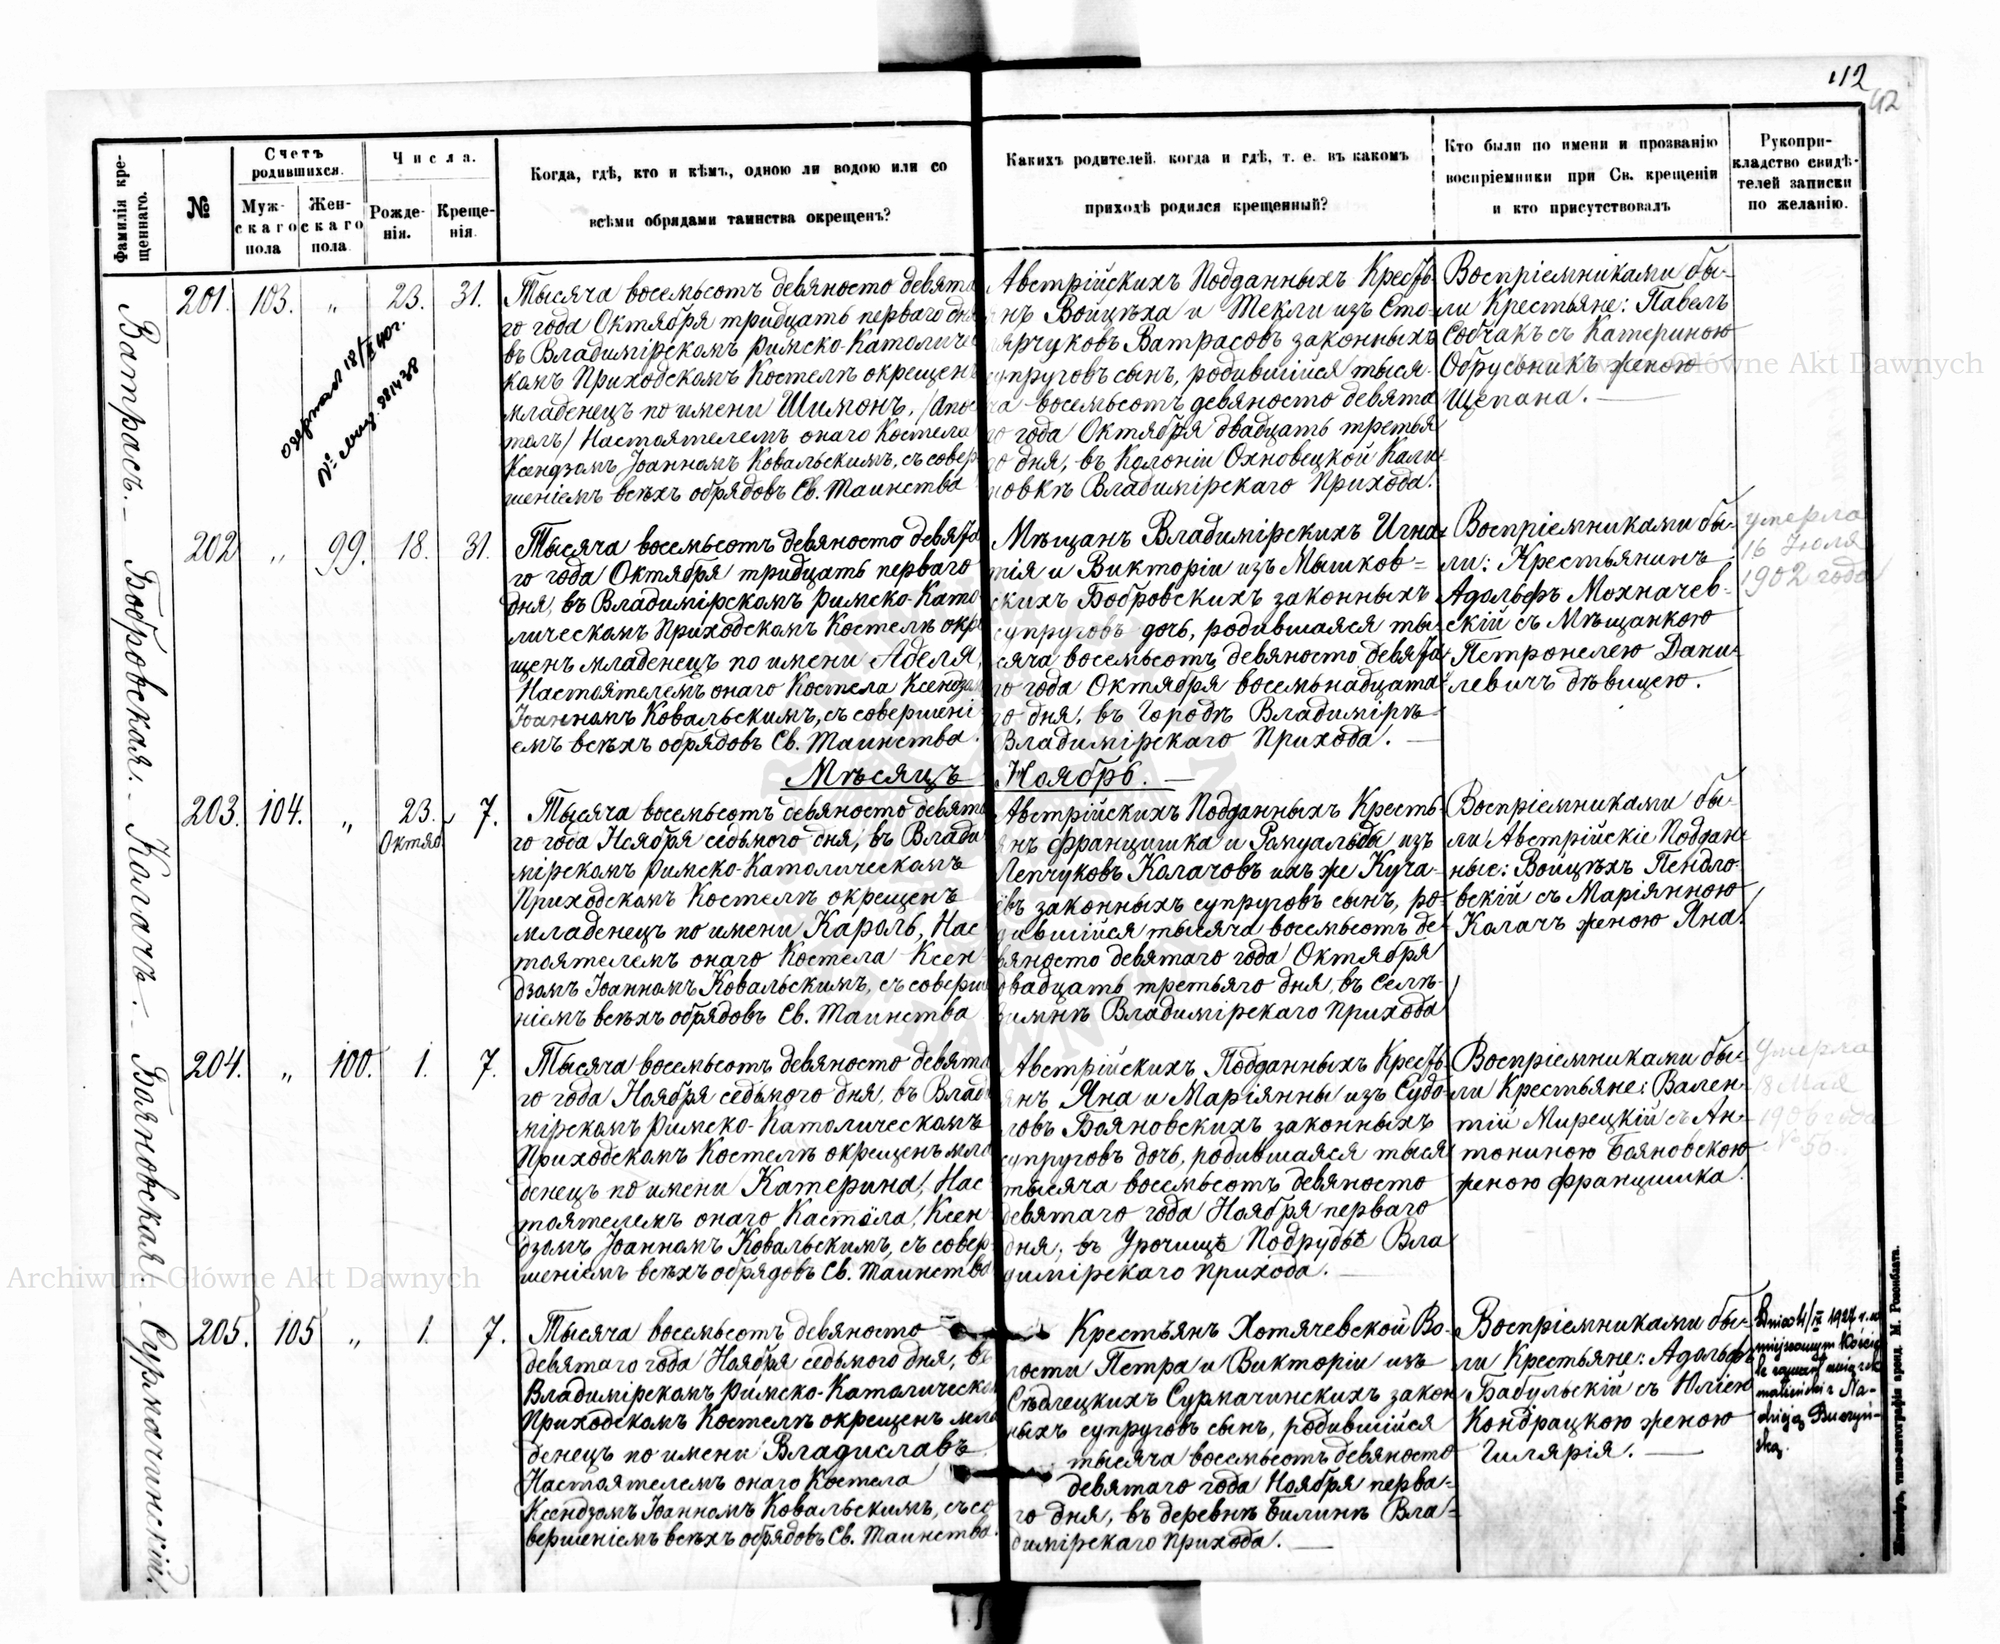 112
42
Фамилія кре-
щеннаго.
№
Счетъ
родившихся.
Муж-
скаго
пола
Жен-
скаго
пола
Числа.
Рожде-
нія.
Креще-
нія.
Когда, гдѣ, кто и кѣмъ, одною ли водою или со
всѣми обрядами таинства окрещенъ?
Какихъ родителей, когда и гдѣ, т. е. въ какомъ
приходѣ родился крещенный?
Кто были по имени и прозванію
воспріемники при Св. крещеніи
и кто присутствовалъ
Рукопри-
кладство свидѣ-
телей записки
по желанію.
Ватрасъ.
201. 103. „ 23. 31.
Тысяча восемьсотъ девяносто девята
го года Октября тридцать перваго дня
въ Владимірскомъ Римско-Католичес
комъ Приходскомъ Костелѣ окрещенъ
младенецъ по имени Шимонъ, /Апос
толъ/ Настоятелемъ онаго Костела
Ксендзомъ Іоанномъ Ковальскимъ, съ совер
шеніемъ всѣхъ обрядовъ Св. Таинства
Австрійскихъ Подданныхъ Кресть-
янъ Войцѣха и Текли изъ Сто-
лярчуковъ Ватрасовъ законныхъ
супруговъ сынъ, родившійся тыся-
ча восемьсотъ девяносто девята
го года Октября двадцать третья
го дня, въ Колоніи Охновецкой Кали-
новкѣ Владимірскаго Прихода.
Воспріемниками бы-
ли Крестьяне: Павелъ
Собчакъ съ Катериною
Обрусьникъ женою
Щепана.
Archiwum Główne Akt Dawnych
Бобровская.
202 „ 99. 18. 31.
Тысяча восемьсотъ девяносто девята
го года Октября тридцать перваго
дня, въ Владимірскомъ Римско-Като-
лическомъ Приходскомъ Костелѣ окре
щенъ младенецъ по имени Аделя,
Настоятелемъ онаго Костела Ксендзом
Іоанномъ Ковальскимъ, съ совершені
емъ всѣхъ обрядовъ Св. Таинства.
Мѣщанъ Владимірскихъ Игна-
тія и Викторіи изъ Мышков-
скихъ Бобровскихъ законныхъ
супруговъ дочь, родившаяся ты-
сяча восемьсотъ девяносто девята
го года Октября восемьнадцата-
го дня, въ Городѣ Владимірѣ
Владимірскаго Прихода.
Воспріемниками бы-
ли: Крестьянинъ
Адольфъ Мохначев-
скій съ Мѣщанкою
Петронелею Дани-
левичъ дѣвицею.
умерла
16 Іюля
1902 года
Мѣсяцъ Ноябрь.
Калачъ.
203. 104. „ 23. Октяб. 7.
Тысяча восемьсотъ девяносто девята
го года Ноября седьмого дня, въ Влади
мірскомъ Римско-Католическомъ
Приходскомъ Костелѣ окрещенъ
младенецъ по имени Кароль, Нас
тоятелемъ онаго Костела Ксен-
дзомъ Іоанномъ Ковальскимъ, съ соверше
ніемъ всѣхъ обрядовъ Св. Таинства
Австрійскихъ Подданныхъ Кресть-
янъ Францишка и Ромуальды изъ
Лепчуковъ Калачовъ ихъ же Куча-
евъ законныхъ супруговъ сынъ, ро-
дившійся тысяча восемьсотъ де-
вяносто девятаго года Октября
двадцать третьяго дня, въ Селѣ
Зимнѣ Владимірскаго Прихода
Воспріемниками бы-
ли Австрійскіе Поддан-
ные: Войцѣхъ Пендло-
вскій съ Маріянною
Калачъ женою Яна.
Бояновская.
204. „ 100. 1. 7.
Тысяча восемьсотъ девяносто девята
го года Ноября седьмого дня, въ Влади
мірскомъ Римско-Католическомъ
Приходскомъ Костелѣ окрещенъ мла
денецъ по имени Катерина, Нас
тоятелемъ онаго Костела, Ксен
дзомъ Іоанномъ Ковальскимъ, съ совер-
шеніемъ всѣхъ обрядовъ Св. Таинства
Австрійскихъ Подданныхъ Кресть-
янъ Яна и Маріянны изъ Судо-
ловъ Бояновскихъ законныхъ
супруговъ дочь, родившаяся тыся
тысяча восемьсотъ девяносто
девятаго года Ноября перваго
дня, въ Урочищѣ Подрудьѣ Вла
димірскаго Прихода.
Воспріемниками бы-
ли Крестьяне: Вален-
тій Мирецкій съ Ан-
тониною Бояновскою
женою Францишка.
Умерла
8 Мая
1906 года
№ 50.
Archiwum Główne Akt Dawnych
Сурмачинскій.
205. 105 „ 1. 7.
Тысяча восемьсотъ девяносто
девятаго года Ноября седьмого дня, въ
Владимірскомъ Римско-Католическом
Приходскомъ Костелѣ окрещенъ мла
денецъ по имени Владиславъ
Настоятелемъ онаго Костела
Ксендзомъ Іоанномъ Ковальскимъ, съ со
вершеніемъ всѣхъ обрядовъ Св. Таинства.
Крестьянъ Хотячевской Во-
лости Петра и Викторіи изъ
Сѣдлецкихъ Сурмачинскихъ закон
ныхъ супруговъ сынъ, родившійся
тысяча восемьсотъ девяносто
девятаго года Ноября перва-
го дня, въ деревнѣ Билинѣ Вла-
димірскаго Прихода.
Воспріемниками бы-
ли Крестьяне: Адольфъ
Бабульскій съ Юліею
Кондрацкою женою
Гилярія.
1927 r. w
miejscowym Koście
le zawarł związek
małżeński z